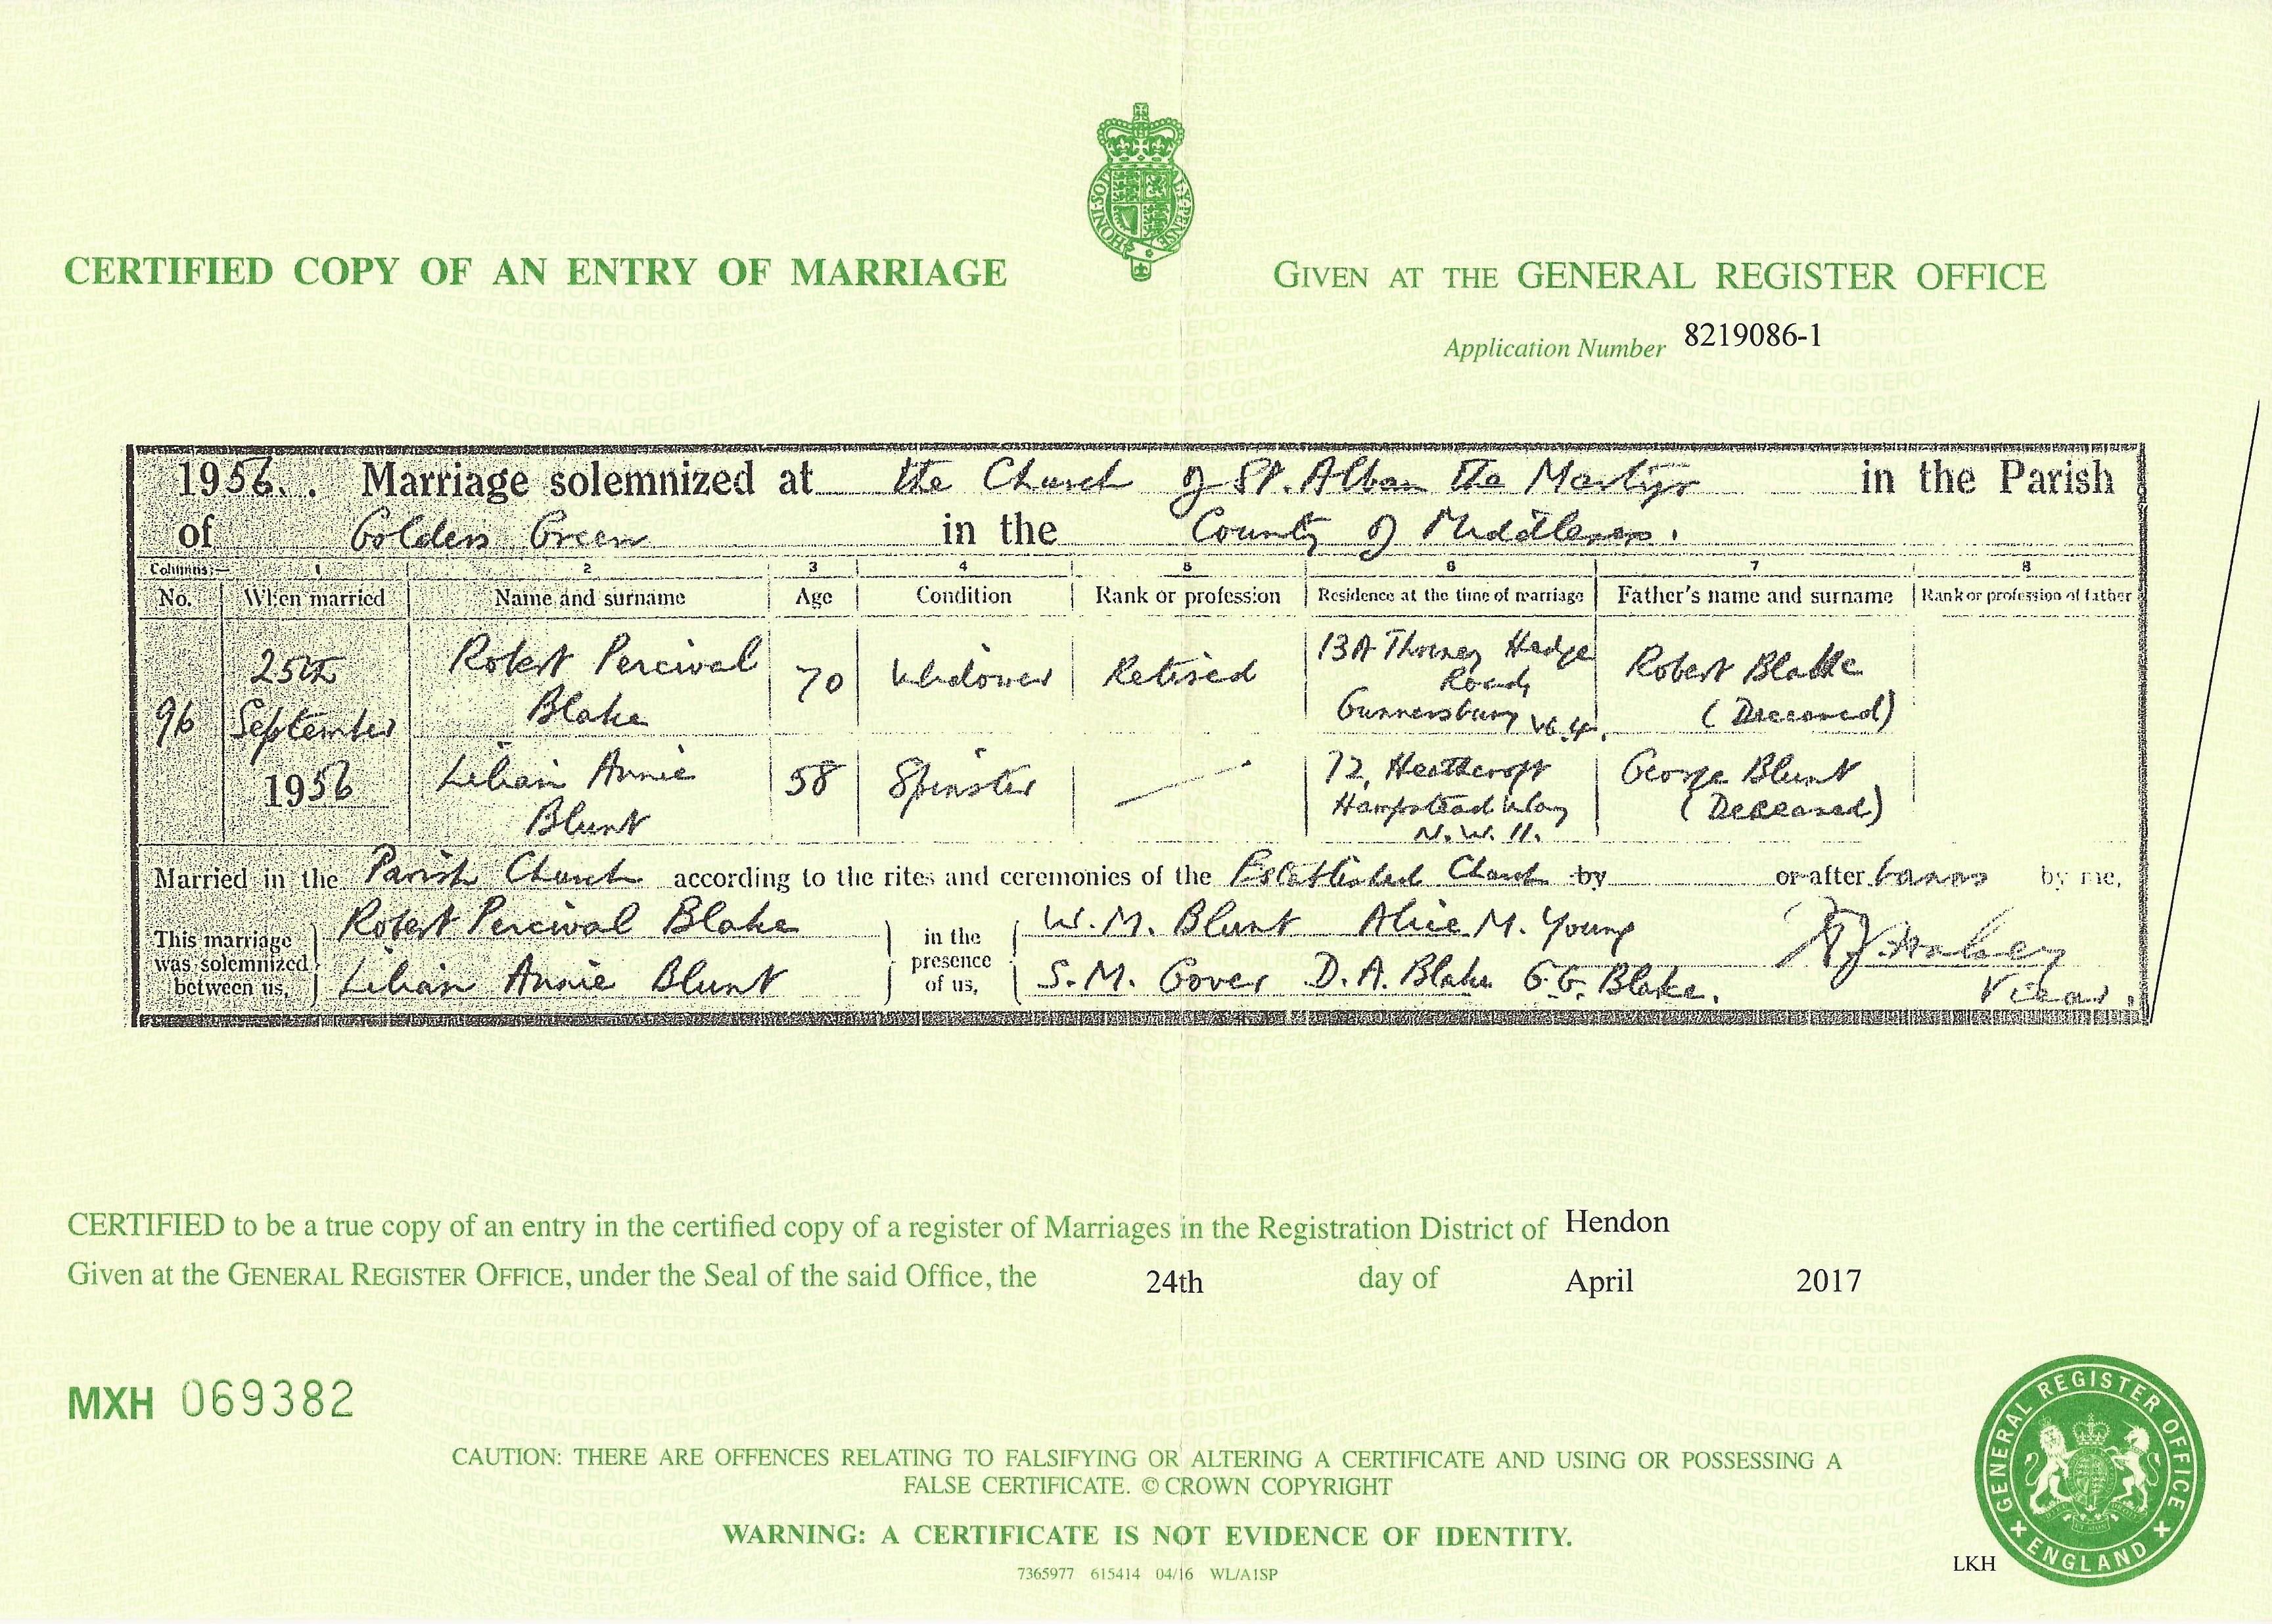 CERTIFIED COPY OF AN ENTRY OF MARRIAGE
GIVEN AT THE GENERAL REGISTER OFFICE
Application Number 8219086-1
1956. Marriage solemnized at the Church of St. Alban the Martyr in the Parish
of Golders Green in the County of Middlesex.
Columns:— 1 2 3 4 5 6 7 8
No. When married Name and surname Age Condition Rank or profession Residence at the time of marriage Father's name and surname Rank or profession of father
96 25th September 1956
Robert Percival Blake 70 Widower Retired 13A Thorney Hedge Road, Gunnersbury W.4. Robert Blake (Deceased)
Lilian Annie Blunt 58 Spinster — 72, Heathcroft Hampstead Way N.W. 11. George Blunt (Deceased)
Married in the Parish Church according to the rites and ceremonies of the Established Church by or after banns by me,
This marriage was solemnized between us,
Robert Percival Blake
Lilian Annie Blunt
in the presence of us,
W. M. Blunt Alice M. Young
S. M. Gover D. A. Blake G. G. Blake.
Vicar.
CERTIFIED to be a true copy of an entry in the certified copy of a register of Marriages in the Registration District of Hendon
Given at the GENERAL REGISTER OFFICE, under the Seal of the said Office, the 24th day of April 2017
MXH 069382
CAUTION: THERE ARE OFFENCES RELATING TO FALSIFYING OR ALTERING A CERTIFICATE AND USING OR POSSESSING A
FALSE CERTIFICATE. © CROWN COPYRIGHT
WARNING: A CERTIFICATE IS NOT EVIDENCE OF IDENTITY.
7365977 615414 04/16 WL/A1SP
LKH
GENERAL REGISTER OFFICE
ENGLAND